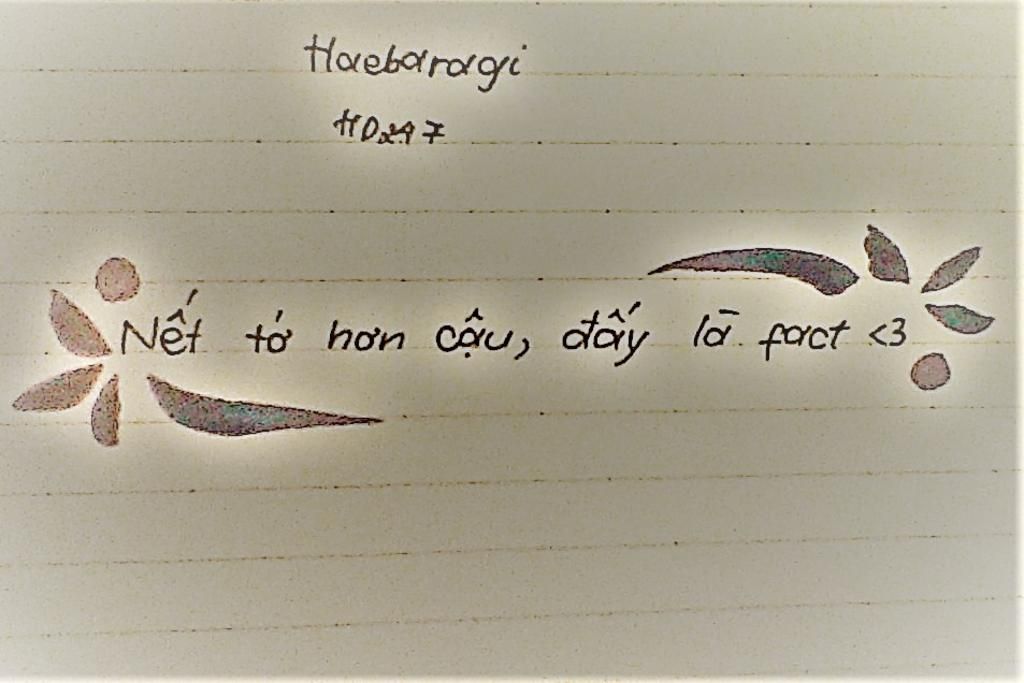 Haebaragi
HD247
Nết tớ hơn cậu, đấy là fact <3